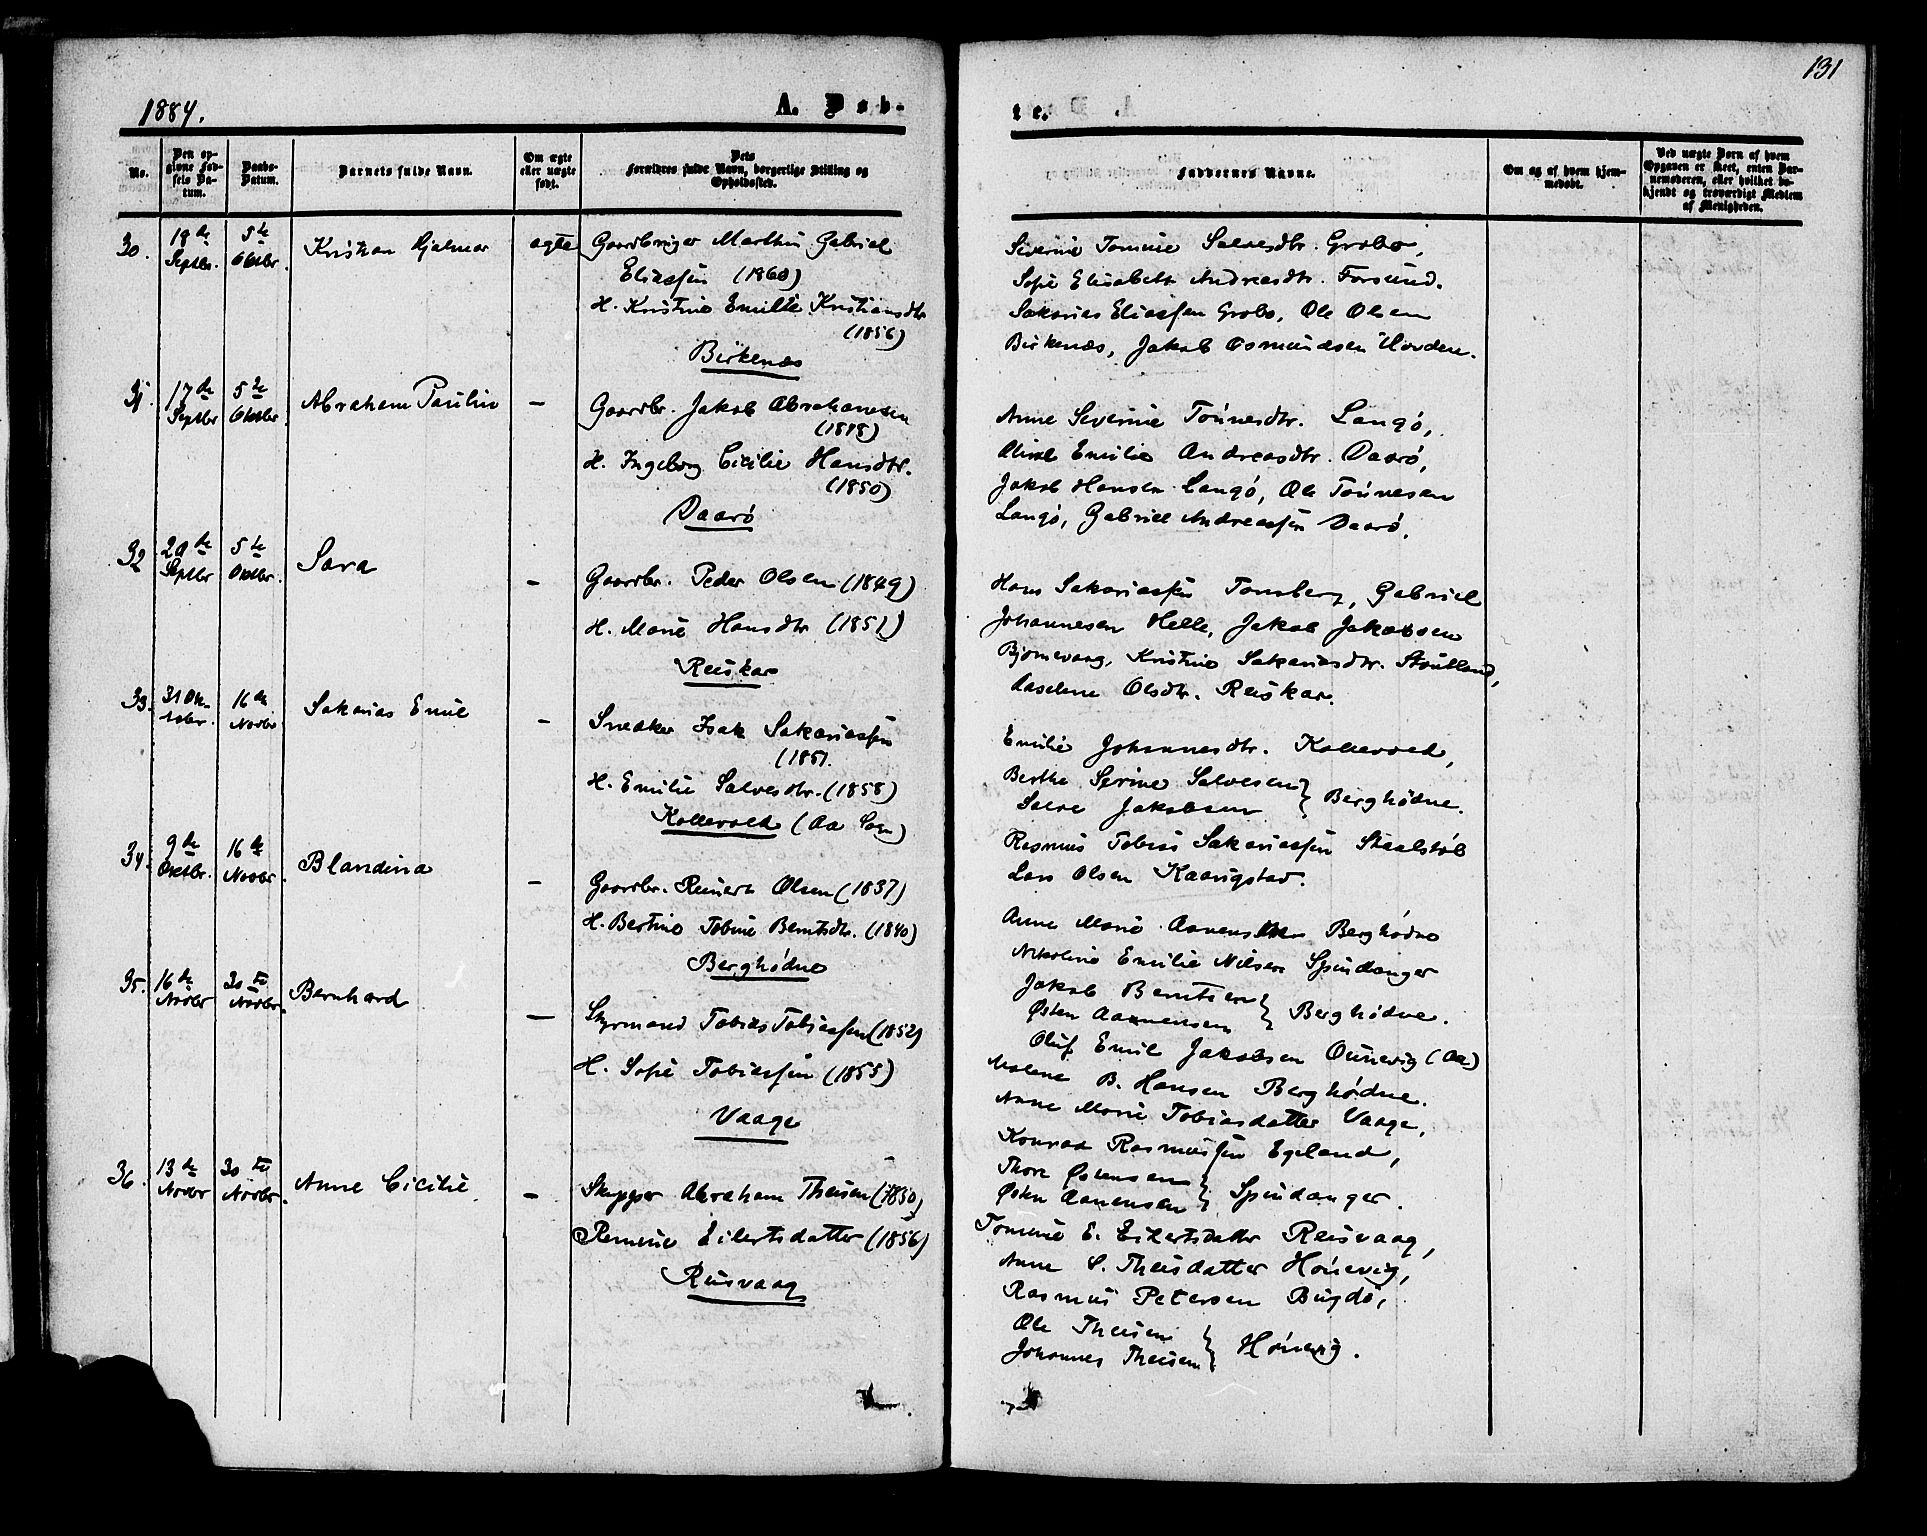 131
1884.
A. Døb-
te.
No.
Den op-
givne Fød-
sels Da-
tum.
Daabs-
Datum.
Barnets fulde Navn.
Om ægte
eller uægte
født.
Dets
Forældres fulde Navn, borgerlige Stilling og
Opholdssted.
Faddernes Navne.
Om og af hvem hjem-
medøbt.
Ved uægte Børn af hvem
Opgaven er skeet, enten Bar-
nemoderen, eller hvilket be-
kjendt og troværdigt Medlem
af Menigheden.
30.
18de
Septbr.
5te
Oktbr.
Kristian Hjalmar
ægte
Gaardbruger Marthin Gabriel
Eliassen (1860)
H. Kristine Emilie Kristiansdtr
(1856)
Birkenæs
Severine Tomine Salvesdtr. Grobo,
Sofie Elisabeth Andreasdtr. Forsund.
Sakarias Eliassen Grobo, Ole Olsen
Birkenæs, Jakob Osmundsen Hovden.
31.
17de
Septbr
5te
Oktbr.
Abraham Paulin
—
Gaardbr. Jakob Abrahamsen
(1818)
H. Ingeborg Cicilie Hansdtr.
(1850)
Daarø
Anne Severine Tønnesdtr. Langø,
Oline Emilie Andreasdtr. Daarø,
Jakob Hansen Langø, Ole Tønnesen
Langø, Gabriel Andreassen Daarø.
32
29de
Septbr
5te
Oktbr.
Sara
—
Gaardbr. Peder Olsen (1849)
H. Marie Hansdtr (1851)
Reiskar
Hans Sakariassen Tonsberg, Gabriel
Johannesen Helle, Jakob Jakobsen
Bjørnevaag, Kristine Sakariasdtr. Stoutland,
Aaselene Olsdtr. Reiskar.
33.
31 Ok-
tober.
16de
Novbr
Sakarias Emil
—
Snedker Isak Sakariassen
(1851.
H. Emilie Salvesdtr. (1858)
Kollevold (Aa Sogn)
Emilie Johannesdtr. Kollevold,
Berthe Serine Salvesen
Salve Jakobsen } Berghødne.
Rasmus Tobias Sakariassen Staalstøl
Lars Olsen Kaarigstad.
34.
9de
Oktbr.
16de
Novbr.
Blandina
—
Gaardbr. Reinert Olsen (1837)
H. Bertine Tobine Berntsdtr. (1840)
Berghødne
Anne Marie Aanensen Berghødne
Nikoline Emilie Nilsen Spindanger
Jakob Berntsen
Østen Aanensen } Berghødne.
Oluf Emil Jakobsen Ounevig (Aa)
Malene B. Hansen Berghødne.
35.
16de
Novbr
30te
Novbr.
Bernhard
—
Styrmand Tobias Tobiassen (1852)
H. Sofie Tobiassen (1855)
Vaage
Anne Marie Tobiasdatter Vaage,
Konrad Rasmussen Egeland,
Thore Østensen
Østen Aanensen } Spindanger.
36.
13de
Novbr
30te
Novbr.
Anne Cicilie
—
Skipper Abraham Theisen (1850)
Remine Eilertsdatter (1856)
Reisvaag
Tomine E. Eilertsdatter Reisvaag,
Anne S. Theisdatter Hønevig,
Rasmus Petersen Bugdø,
Ole Theisen
Johannes Theisen } Hønevig.